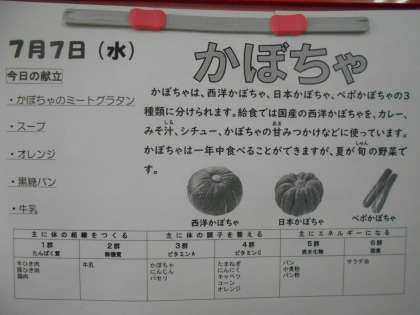 7月7日（水）
かぼちゃ
今日の献立
・かぼちゃのミートグラタン
・スープ
・オレンジ
・黒糖パン
・牛乳
かぼちゃは、西洋かぼちゃ、日本かぼちゃ、ペポかぼちゃの3
種類に分けられます。給食では国産の西洋かぼちゃを、カレー、
みそ汁、シチュー、かぼちゃの甘みつかけなどに使っています。
かぼちゃは一年中食べることができますが、夏が旬の野菜で
す。
西洋かぼちゃ 日本かぼちゃ ペポかぼちゃ
主に体の組織をつくる 主に体の調子を整える 主にエネルギーになる
1群 2群 3群 4群 5群 6群
たんぱく質 無機質 ビタミンA ビタミンC 炭水化物 脂質
牛ひき肉 牛乳 かぼちゃ たまねぎ パン サラダ油
豚ひき肉 にんじん にんにく 小麦粉
鶏肉 パセリ キャベツ パン粉
コーン
オレンジ